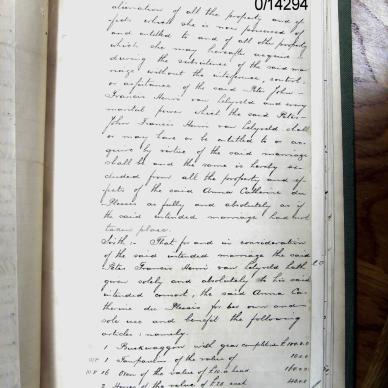 0/14294
alienation of all the property and ef-
fects which she is now possessed of
and entitled to and of all other property
which she may hereafter acquire
during the subsistence of the said mar
riage without the interference, control
or assistance of the said Peter John
Francis Henri van Celyveld and every
marital power which the said Peter
John Francis Henri van Celyveld shall
or may have or be entitled to or ac-
quire by virtue of the said marriage
shall be and the same is hereby ex-
cluded from all the property and ef-
fects of the said Anna Catherine du
Plessis as fully and absolutely as if
the said intended marriage had not
taken place.
Sixth:- That for and in consideration
of the said intended marriage the said
Peter Francis Henri van Celyveld hath
given solely and absolutely to his said
intended consort, the said Anna Ca-
therine du Plessis for her own and
sole use and benefit the following
articles: namely:
1 Buckwaggon with gear complete
1 of the value of
16 Oxen of the value of £10 a head
2 Horses of the value of £20 each